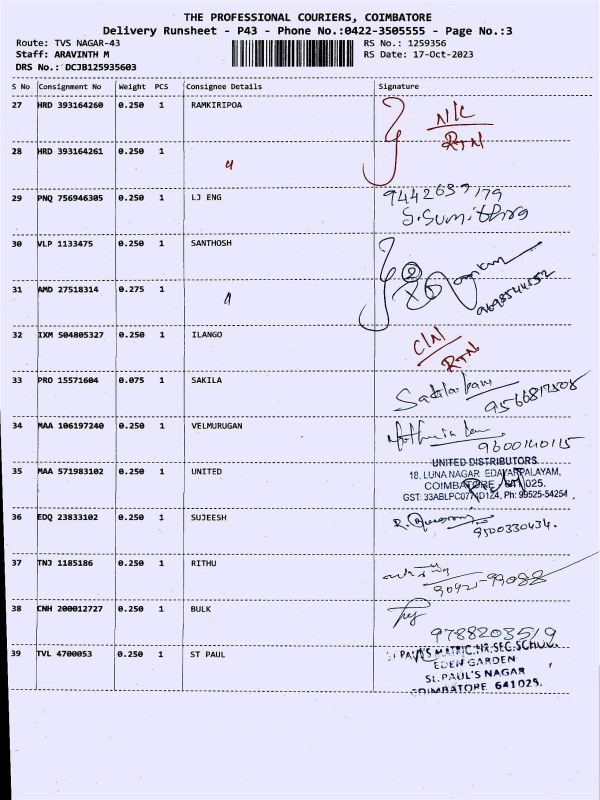 THE PROFESSIONAL COURIERS, COIMBATORE
Delivery Runsheet - P43 - Phone No.:0422-3505555 - Page No.:3
Route: TVS NAGAR-43
RS No.: 1259356
Staff: ARAVINTH M
RS Date: 17-Oct-2023
DRS No.: DCJB125935603
S No Consignment No Weight PCS Consignee Details Signature
27 HRD 393164260 0.250 1 RAMKIRIPOA N/C
RTN
28 HRD 393164261 0.250 1 〃
29 PNQ 756946305 0.250 1 LJ ENG 9442639179
S.Sumithra
30 VLP 1133475 0.250 1 SANTHOSH
31 AMD 27518314 0.275 1 〃
32 IXM 504805327 0.250 1 ILANGO C/N
RTN
33 PRO 15571604 0.075 1 SAKILA
9566817508
34 MAA 106197240 0.250 1 VELMURUGAN
9600140115
35 MAA 571983102 0.250 1 UNITED UNITED DISTRIBUTORS
18, LUNA NAGAR EDAYARPALAYAM,
COIMBATORE - 641 025.
Ph: 99525-54254
36 EDQ 23833102 0.250 1 SUJEESH
9500330434.
37 TNJ 1185186 0.250 1 RITHU
90925-99088
38 CNH 200012727 0.250 1 BULK
9788203519
39 TVL 4700053 0.250 1 ST PAUL ST PAUL'S MATRIC.HR.SEC.SCHOOL
EDEN GARDEN
St. PAUL'S NAGAR
COIMBATORE 641025.